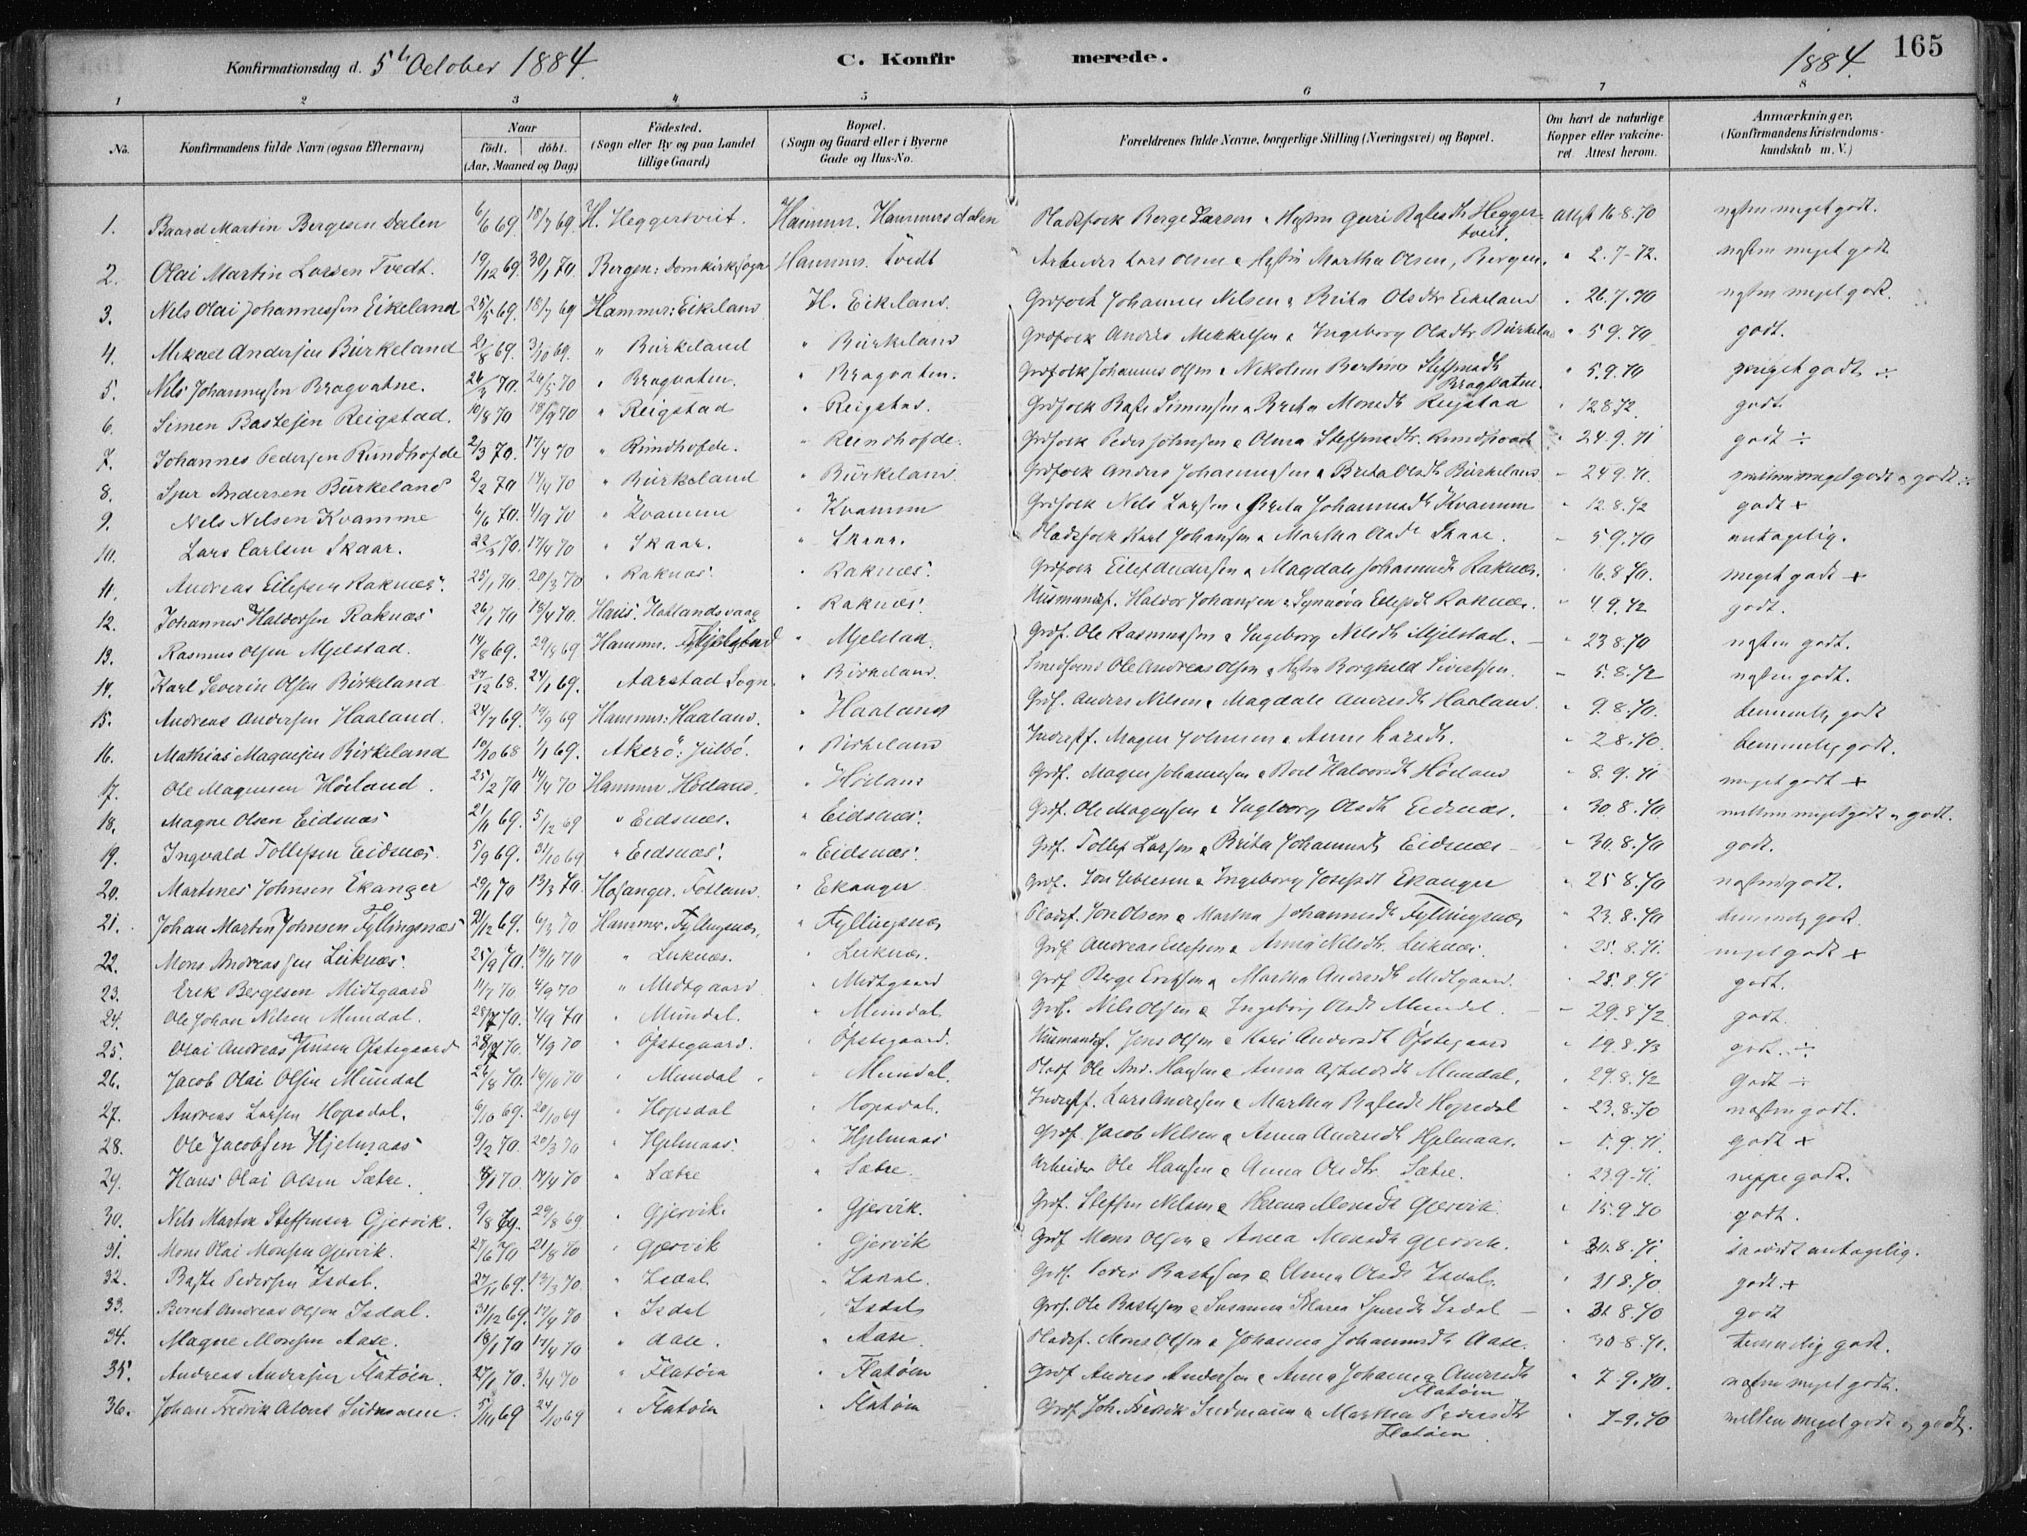 Konfirmationsdag d. 5te October 1884. C. Konfirmerede. 1884. 165
1 2 3 4 5 6 7 8
No. Konfirmandens fulde Navn (ogsaa Efternavn) Naar født. døbt. (Aar, Maaned og Dag) Fødested. (Sogn eller By og paa Landet tillige Gaard) Bopæl. (Sogn og Gaard eller i Byerne Gade og Hus-No. Forældrenes fulde Navne, borgerlige Stilling (Næringsvei) og Bopæl. Om havt de naturlige Kopper eller vakcineret. Attest herom. Anmærkninger. (Konfirmandens Kristendomskundskab m. V.)
1. Baard Martin Bergesen Dalen 6/6 69. 18/7 69. H. Heggertveit. Hammer. Hammersdalen Pladsfolk Berge Larsen & Hustru Guri Heggertveit. Attest 16-8.70 næsten meget godt.
2. Olai Martin Larsen Tvedt. 19/12 69. 30/1 70 Bergen: Domkirkesogn Hammer. Tvedt Arbeider Lars Olsen & Hustru Martha Olsen, Bergen. " 2.7-72. næsten meget godt
3. Nels Olai Johannessen Eikeland 25/5 69. 18/7 69 Hammer: Eikeland H. Eikeland. Grdfolk Johannes Nilsen & Brita Olsdtr Eikeland " 26.7.70 næsten meget godt.
4. Mikael Andersen Birkeland 21/8 69. 3/10 69. " Birkeland " Birkeland Grdfolk Anders Mikkelsen & Ingeborg Olsdtr. Birkeland " 5 9.70 godt.
5. Nels Johannessen Bragvatne. 26/3 70. 26/5 70 " Bragvaten. " Bragvaten. Grdfolk Johannes Olsen & Nikoline Bragvaten. " 5.9.70 meget godt ÷
6. Simen Bastesen Reigstad. 10/8 70 18/9 70 " Reigstad " Reigstad. Grdfolk Baste Simensen & Brita Monsdtr Reigstad " 12 8.72. godt.
7. Johannes Pedersen Rundhofde 2/3 70. 17/4 70 " Rundhofde. " Rundhofde. Grdfolk Peder Johnsen & Olina Steffensdtr. " 24-9.71 godt ÷
8. Sjur Andersen Birkeland 2/2 70 17/4 70 " Birkeland " Birkeland Grdfolk Anders Johannessen & Brita Olsdtr Birkeland " 24 9.71. meget godt & godt ÷
9. Nels Nelsen Kvamme 6/6 70. 4/9 70 " Kvamme " Kvamm Grdfolk Nels Larsen & Brita Johannesdtr Kvamm " 12.8.72 godt +
10. Lars Carlsen Skaar. 22/3 70. 17/4 70 " Skaar. " Skaar. Pladsfolk Karl Johansen & Martha Olsdtr Skaar. " 5 9.70 antagelig.
11. Andreas Eilefsen Raknæs. 25/1 70 20/3 70 " Raknæs. " Raknæs. Grdfolk Eilef Andersen & Magdale Johannesdtr Raknæs. " 16.8.70. meget godt +
12. Johannes Haldorsen Raknæs 26/1 70 18/4 70. Haus: Hatlandsvaag " Raknæs. Husmandsf. Haldor Johansen & Synnøva Eilefsdtr Raknæs. " 4 9.72 godt.
13. Rasmus Olsen Mjelstad. 14/8 69. 29/8 69 Hammer. Mjelstad " Mjelstad. Grdf. Ole Rasmussen & Ingeborg Nilsdtr Mjelstad. " 23 8.70 næsten godt.
14. Karl Severin Olsen Birkeland 27/12 68. 24/1 69. Aarstad Sogn. " Birkeland. Ole Andreas Olsen & Hustru Borghild Sivertsen. " 5.8.72 næsten godt.
15. Andreas Andersen Haaland. 24/7 69. 19/9 69 Hammer: Haaland. " Haaland Grdf. Anders Nilsen & Magdale Andersdtr Haaland. " 9.8.70. temmelig godt
16. Mathias Magnesen Birkeland 10/10 68 1/1 69. Akerö: Julbö. " Birkeland Inderstf. Magne Johnsen & Anne Larsdtr. " 2 8.70. temmelig godt.
17. Ole Magnesen Höiland. 25/2 70 14/4 70 Hammer. Hoiland. " Höiland Grdf. Magne Johannessen & Boel Halvorsdtr Höiland " 8.9.71 meget godt +
18. Magne Olsen Eidsnæs 21/11 69. 5/12 69 " Eidsnæs. " Eidsnæs. Grdf. Ole Magnesen & Ingeborg Olsdtr Eidsnæs. " 30.8.70 mellem meget godt & godt.
19. Ingvald Tollefsen Eidsnæs. 5/9 69. 31/10 69 " Eidsnæs. " Eidsnæs. Grdf. Tollef Larsen & Brita Johannesdtr Eidsnæs " 30.8.70 godt.
20. Martines Johnsen Ekanger 29/1 70 13/3 70. Hosanger. Fotland. " Ekanger Grdf. Jon & Ingeborg Josefsdtr Ekanger " 25 8.70 næsten godt.
21. Johan Martin Johnsen Fyllingsnæs 21/12 69. 6/3 70 Hammer. Fyllingsnæs. " Fyllingsnæs Pladsf. Jon Olsen & Martha Johannesdtr Fyllingsnæs " 23.8.70 temmelig godt
22. Mons Andreassen Leiknæs. 25/9 70. 13/11 70 " Leiknæs. " Leiknæs. Grdf. Andreas Eilefsen & Anna Nilsdtr. Leiknæs. " 25.8.71. meget godt +
23. Erik Bergesen Midtgaard 11/7 70 4/9 70 " Midtgaard " Midtgaard Grdf. Berge Eriksen & Martha Andersdtr Midtgaard. " 25.8.71 godt.
24. Ole Johan Nilsen Mundal. 28/7 70. 4/9 70 " Mundal. " Mundal Grdf. Nils Olsen & Ingeborg Olsdtr Mundal. " 29.8.72 godt.
25. Olai Andreas Jensen Öfstegaard 28/7 70. 4/9 70 " Öfstegaard. " Öfstegaard. Husmandsf. Jens Olsen & Kari Andersdtr Öfstegaard " 19.8.73 godt ÷
26. Jacob Olai Olsen Mundal 26/8 70. 16/10 70 " Mundal " Mundal. Pladsf. Ole And. Hansen & Anna Mundal. " 29.8.72 godt ÷
27. Andreas Larsen Hopsdal. 6/10 69. 20/10 69 " Hopsdal " Hopsdal. Inderstf. Lars Andersen & Martha Hopsdal " 23.8.70 næsten godt.
28. Ole Jacobsen Hjelmaas 9/2 70. 20/3 70 " Hjelmaas " Hjelmaas Grdf. Jacob Nelsen & Anna Andersdtr Hjelmaas. " 1.9.71. godt +
29. Hans Olai Olsen Sætre. 70 17/4 70 " Sætre " Sætre. Arbeider Ole Hansen & Anna Olsdtr. Sætre. " 23.9-71. neppe godt.
30. Nils Martin Steffensen Gjervik. 9/8 69. 29/8 69 " Gjervik. " Gjervik. Grdf. Steffen Nelsen & Helena Monsdtr Gjervik " 15.9.70 godt.
31. Mons Olai Monsen Gjervik. 27/6 70 21/8 70 " Gjervik " Gjervik Grdf. Mons Olsen & Anna Monsdtr Gjervik. " 30.8.71 saavidt antagelig.
32. Baste Pedersen Isdal. 27/11 69. 13/3 70. " Isdal. " Isdal. Grdf. Peder Bastesen & Anna Olsdtr Isdal. " 31 8.70 godt +
33. Bernt Andreas Olsen Isdal. 31/12 69. 17/4 70 " Isdal " Isdal Grdf. Ole Bastesen & Susanna Maria Sjursdtr Isdal " 31 8.70 godt
34. Magne Monsen Aase. 18/1 70 17/4 70 " Aase. " Aase Pladsf. Mons Olsen & Johanna Johannesdtr Aase. " 30-8.71. temmelig godt.
35. Andreas Andersen Flatöen. 27/1 70. 3/4 70 " Flatöen " Flatöen Grdf. Anders Andersen & Anna Johanna Andersdtr Flatöen " 7-9.70. næsten meget godt.
36. Johan Fredrik Albert Sudmann. 5/10 69 24/10 69 " Flatöen " Flatöen Grdf. Joh. Fredrik Sudmann & Martha Pedersdtr Flatöen " 7-9.70 mellem meget godt og godt.